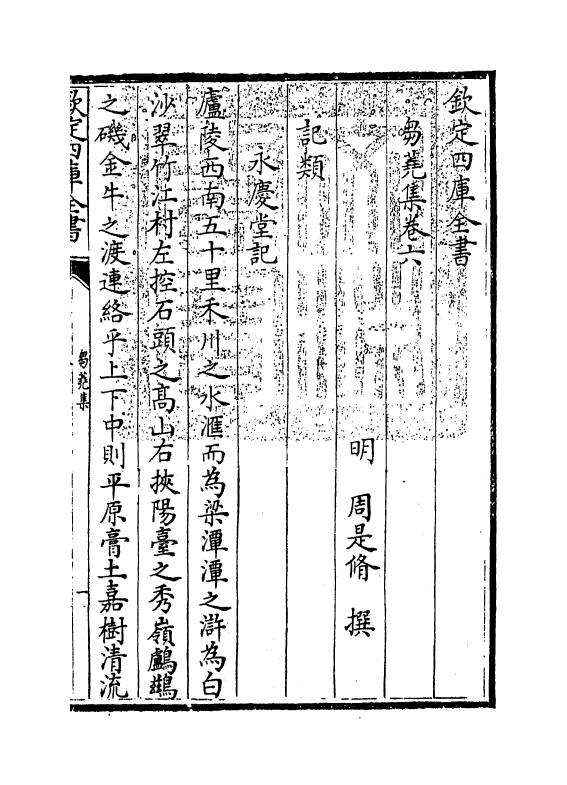 欽定四庫全書
芻蕘集卷六
明　周是脩　撰
記類
永慶堂記
廬陵西南五十里禾川之水滙而為梁潭潭之滸為白
沙翠竹江村左控石頭之髙山右挾陽臺之秀嶺鸕鷀
之磯金牛之渡連絡乎上下中則平原膏土嘉樹清流
欽定四庫全書
芻蕘集
一